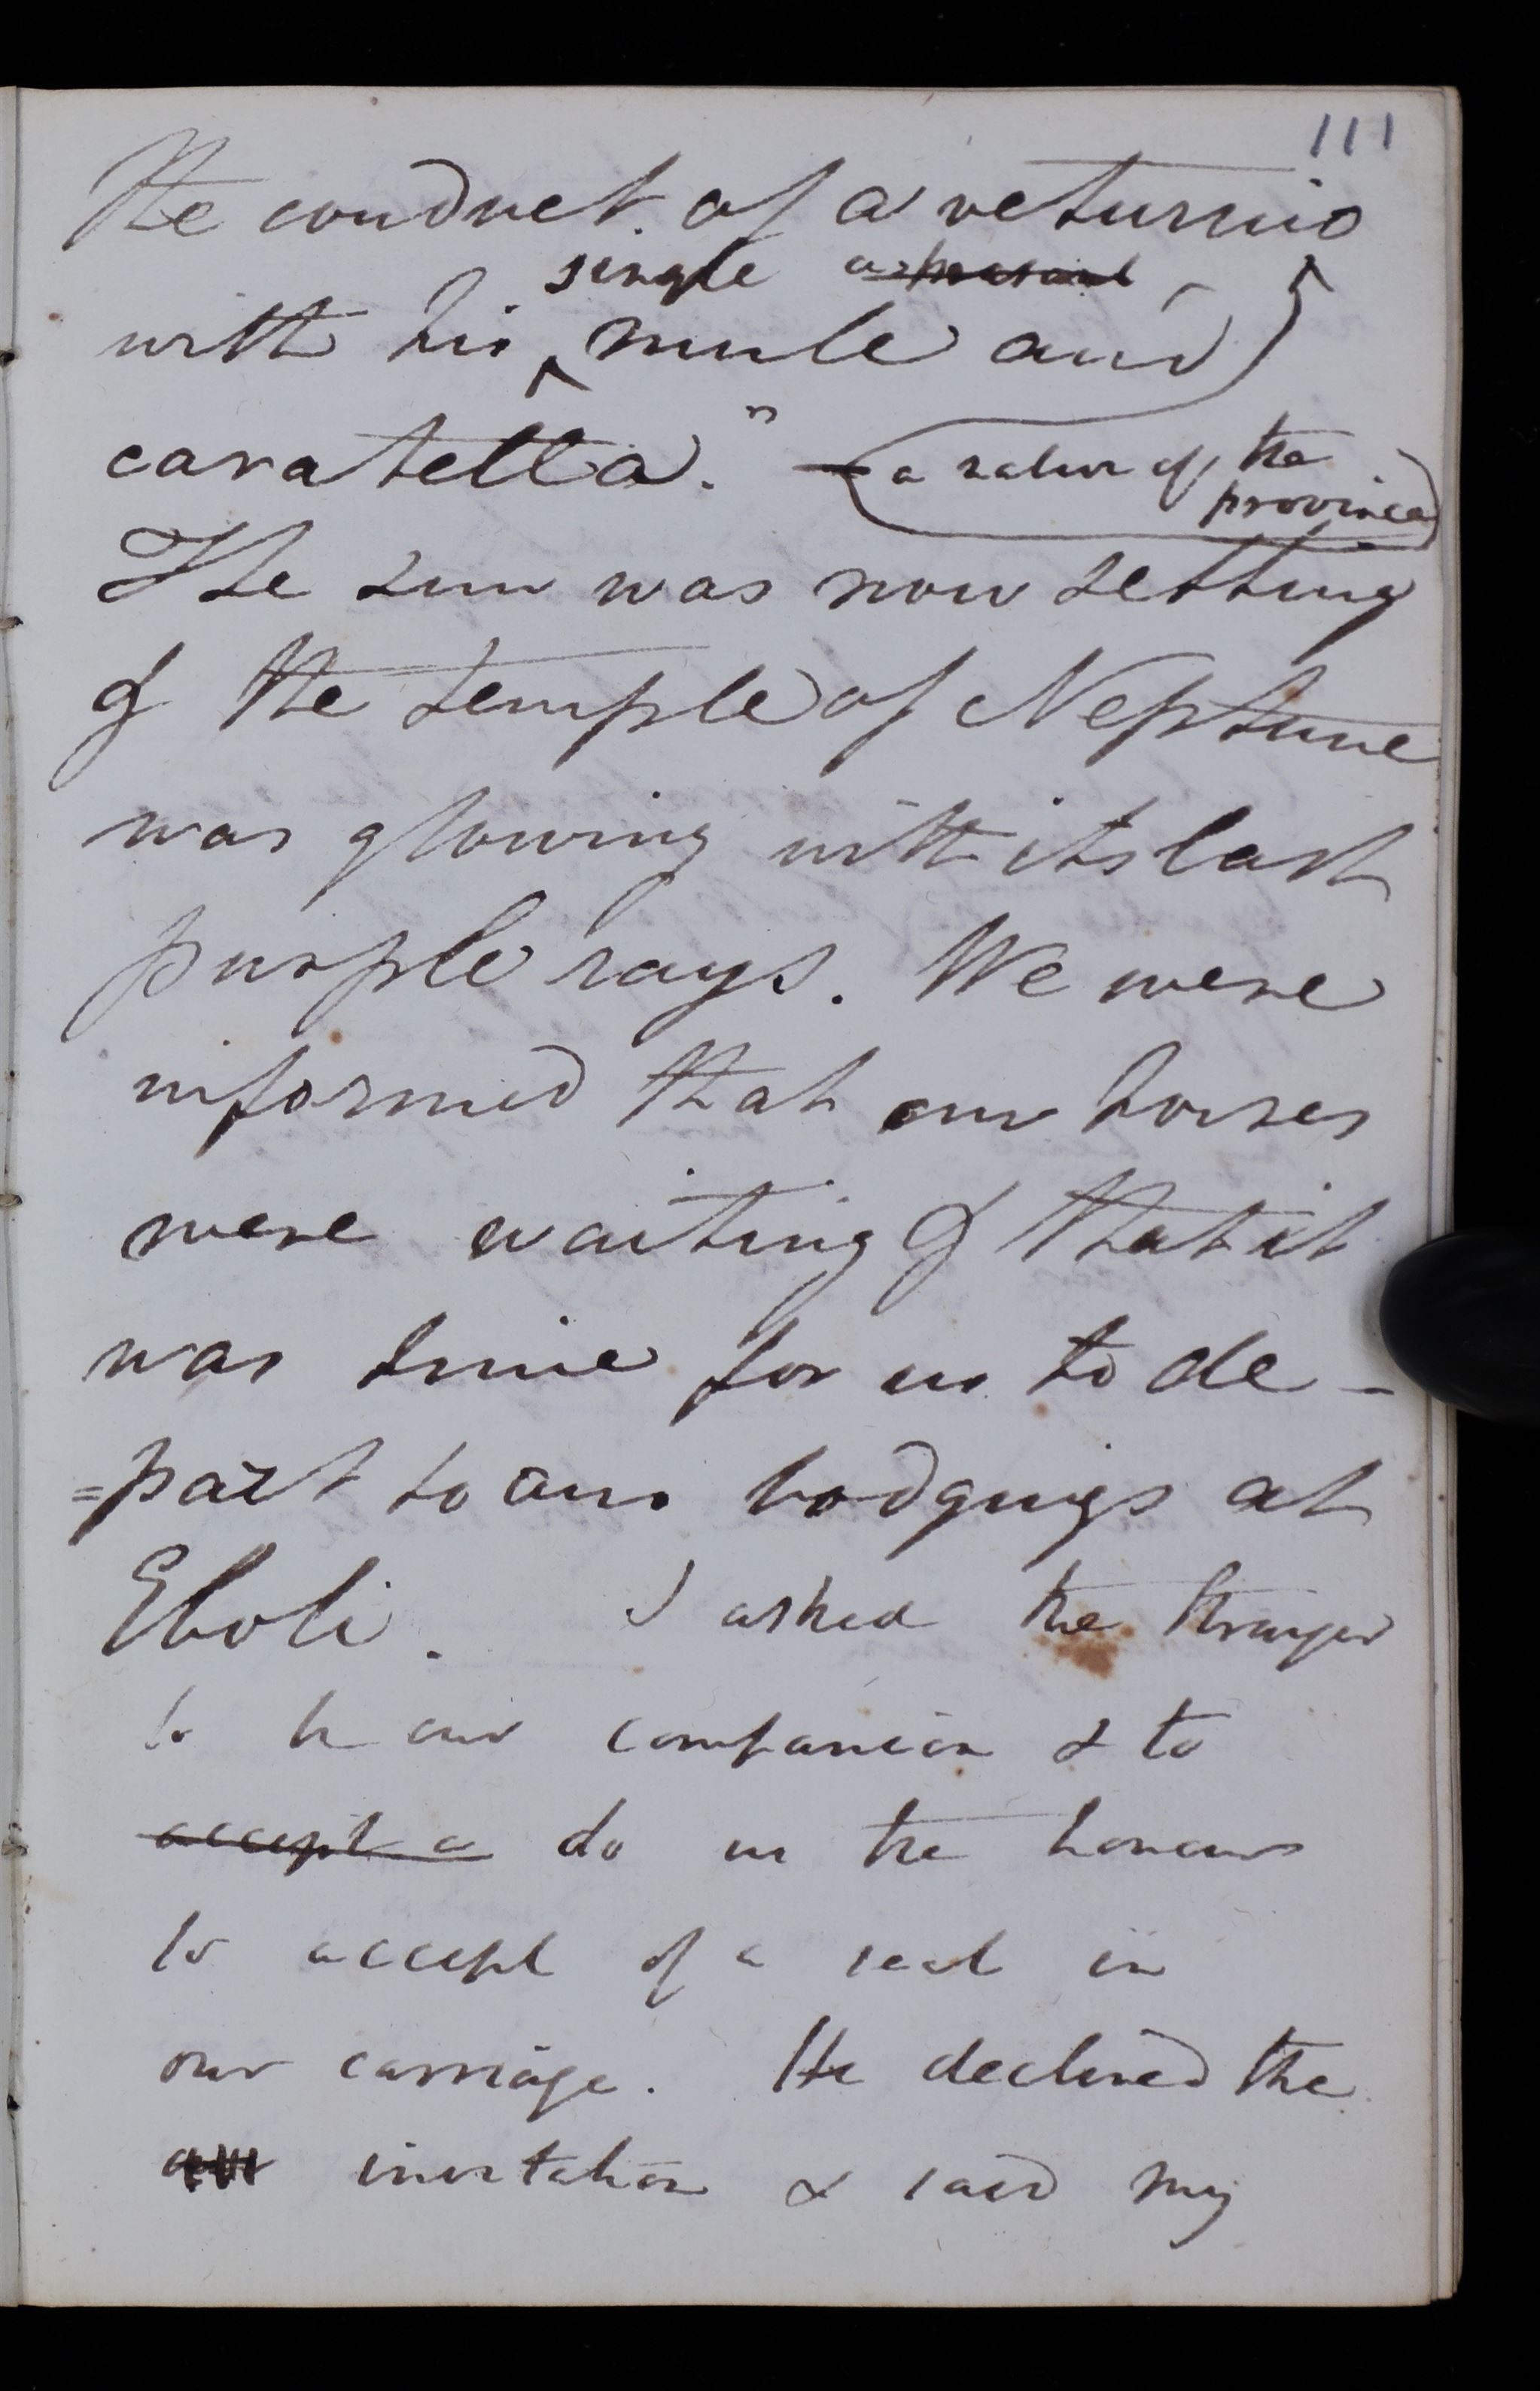 111
the conduct of a veturnio
single a peasant
with his ^ mule and
caratella." (a native of the
province)
The sun was now setting
& the temple of Neptune
was glowing with its last
purple rays. We were
informed that our horses
were waiting & that it
was time for us to de-
=part to our lodgings at
Eboli. I asked the stranger
to be our companion & to
accept a do us the honour
to accept of a seat in
our carriage. He declined the
invitation & said my